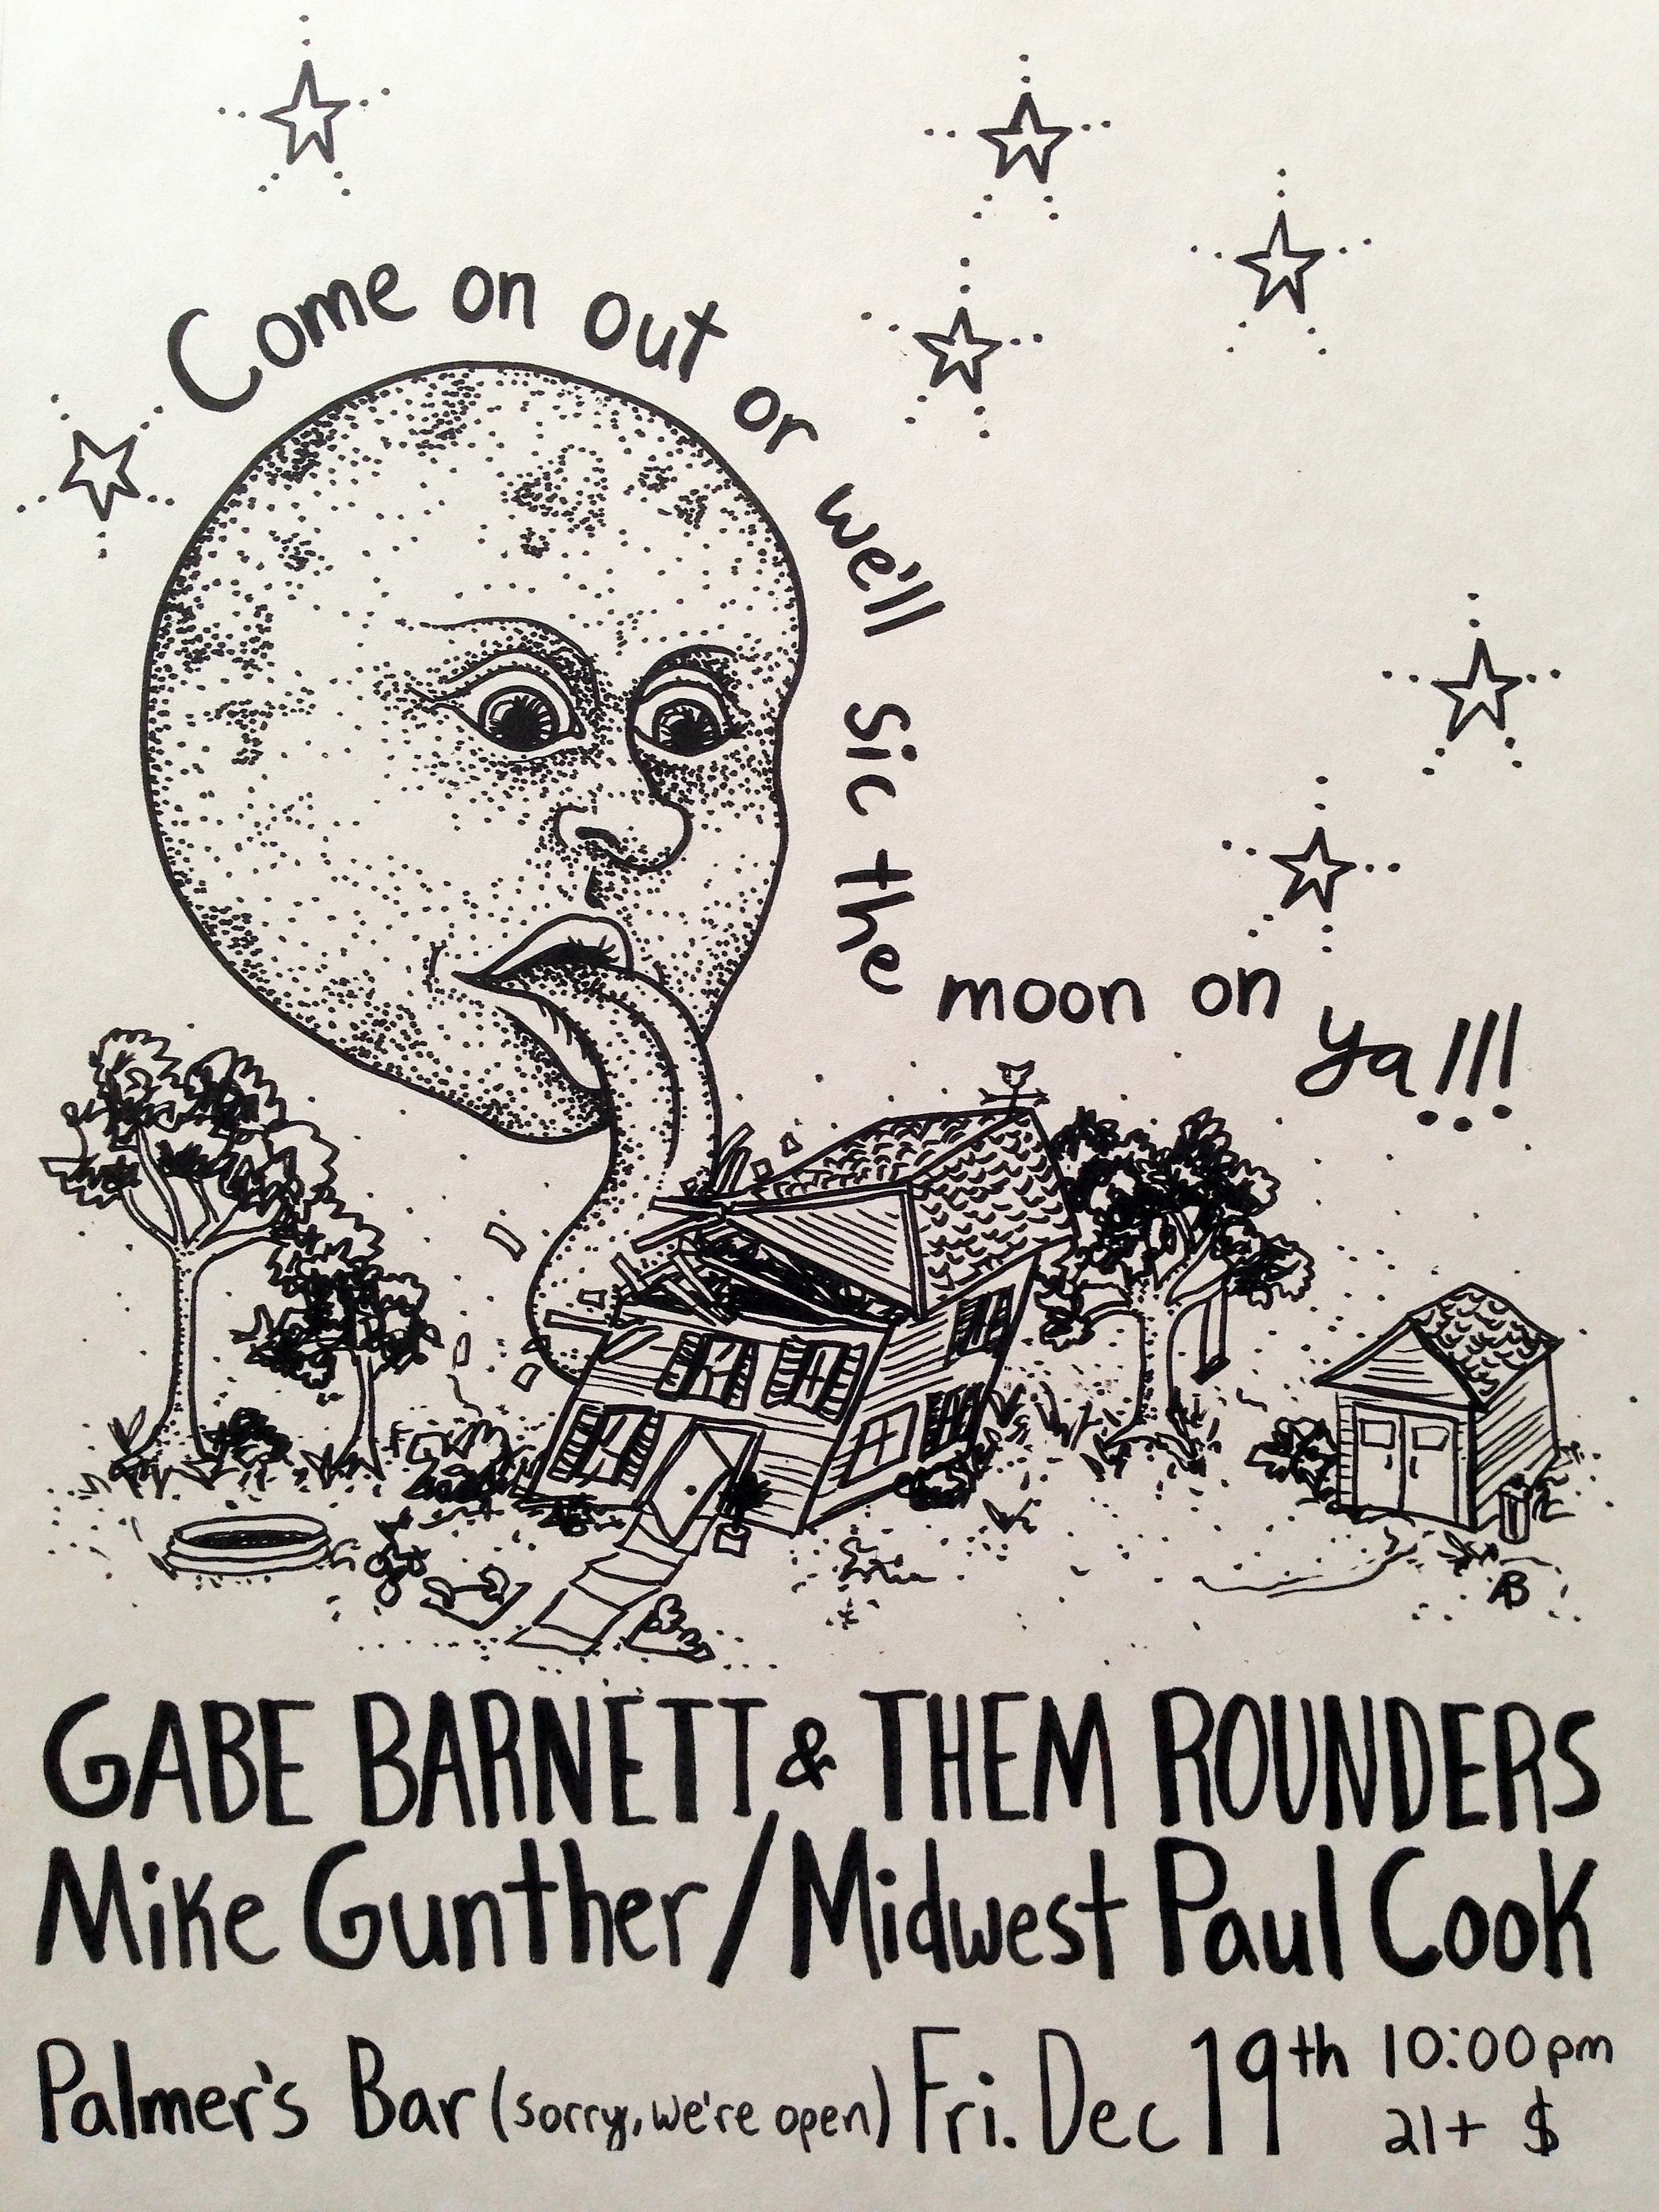 Come on out or we'll sic the moon on ya!!!
AB
GABE BARNETT & THEM ROUNDERS
Mike Gunther / Midwest Paul Cook
Palmer's Bar (sorry, we're open) Fri. Dec 19th 10:00pm
21+ $